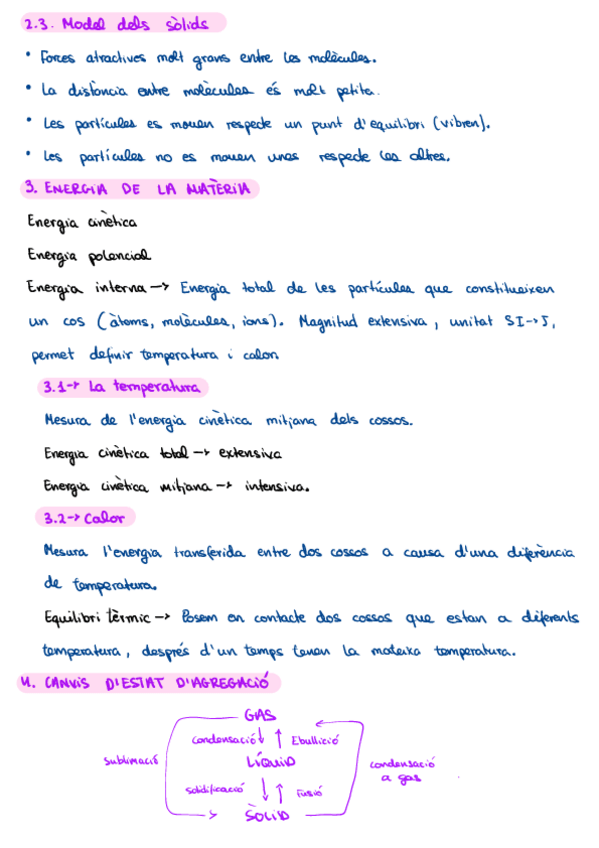 2.3. Model dels sòlids
• Forces atractives molt grans entre les molècules.
• La distància entre molècules és molt petita.
• Les partícules es mouen respecte un punt d'equilibri (vibren).
• Les partícules no es mouen unes respecte les altres.
3. ENERGIA DE LA MATÈRIA
Energia cinètica
Energia potencial
Energia interna → Energia total de les partícules que constitueixen
un cos (àtoms, molècules, ions). Magnitud extensiva, unitat SI→J,
permet definir temperatura i calor
3.1→ La temperatura
Mesura de l'energia cinètica mitjana dels cossos.
Energia cinètica total → extensiva
Energia cinètica mitjana → intensiva.
3.2→ Calor
Mesura l'energia transferida entre dos cossos a causa d'una diferència
de temperatura.
Equilibri tèrmic → Posem en contacte dos cossos que estan a diferents
temperatura, després d'un temps tenen la mateixa temperatura.
4. CANVIS D'ESTAT D'AGREGACIÓ
GAS
condensació ↓ ↑ Ebullició
sublimació LÍQUID condensació
a gas
solidificació ↓ ↑ Fusió
SÒLID